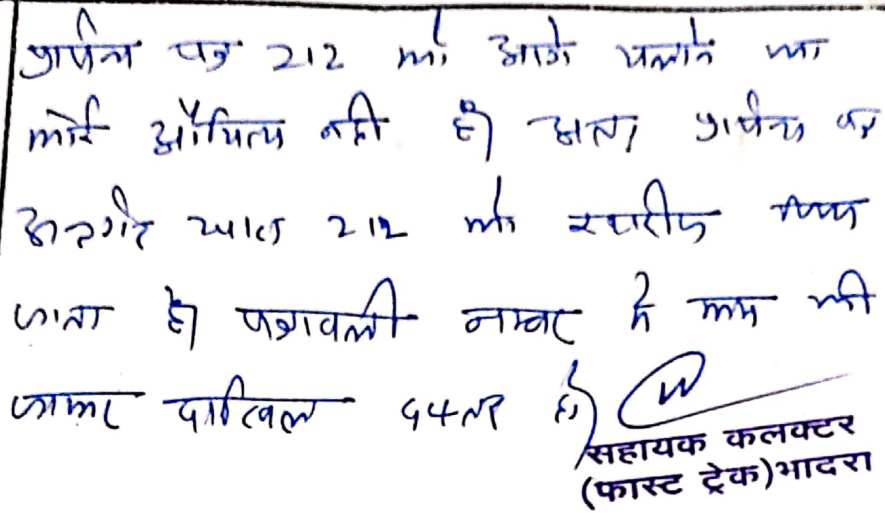 प्रार्थना पत्र 212 को आगे चलाने का
कोई औचित्य नही है। अतः प्रार्थना पत्र
अन्तर्गत धारा 212 को खारीज किया
जाता है। पत्रावली नम्बर से कम की
जाकर दाखिल दफ्तर हो।
सहायक कलक्टर
(फास्ट ट्रेक) भादरा